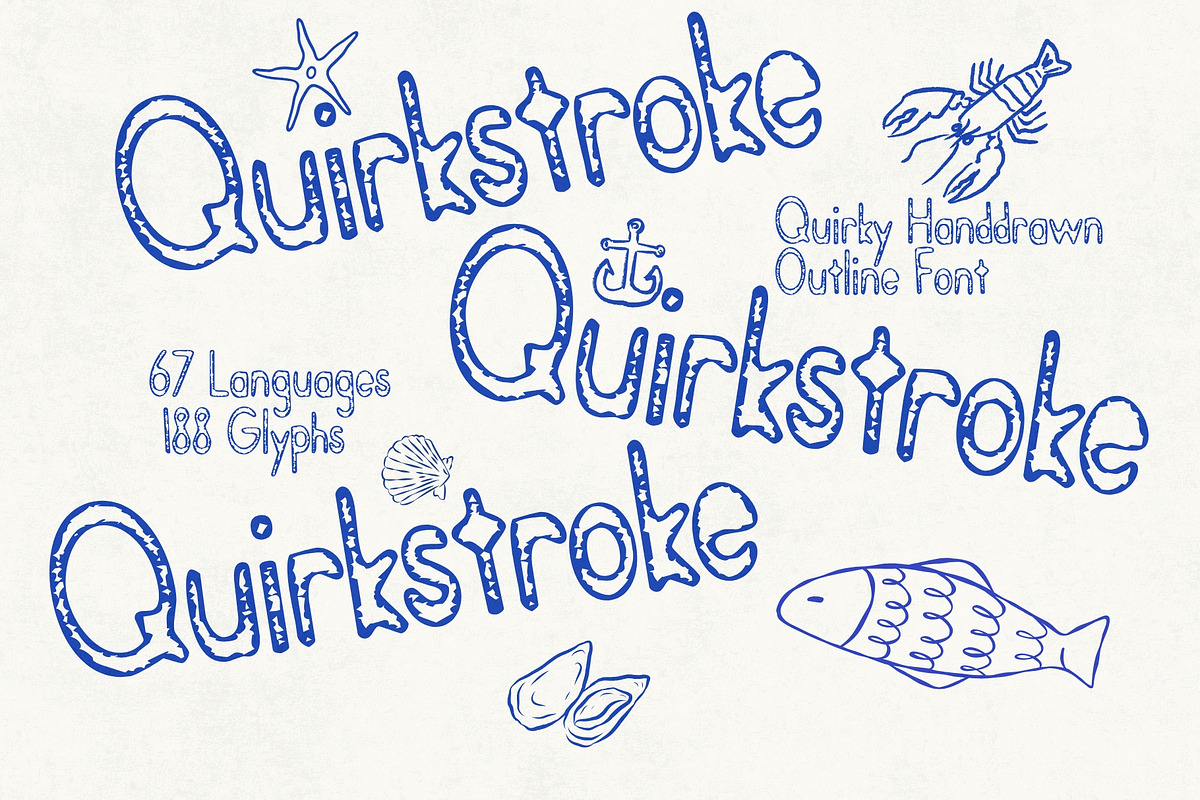 Quirkstroke
Quirky Handdrawn
Outline Font
Quirkstroke
67 Languages
188 Glyphs
Quirkstroke